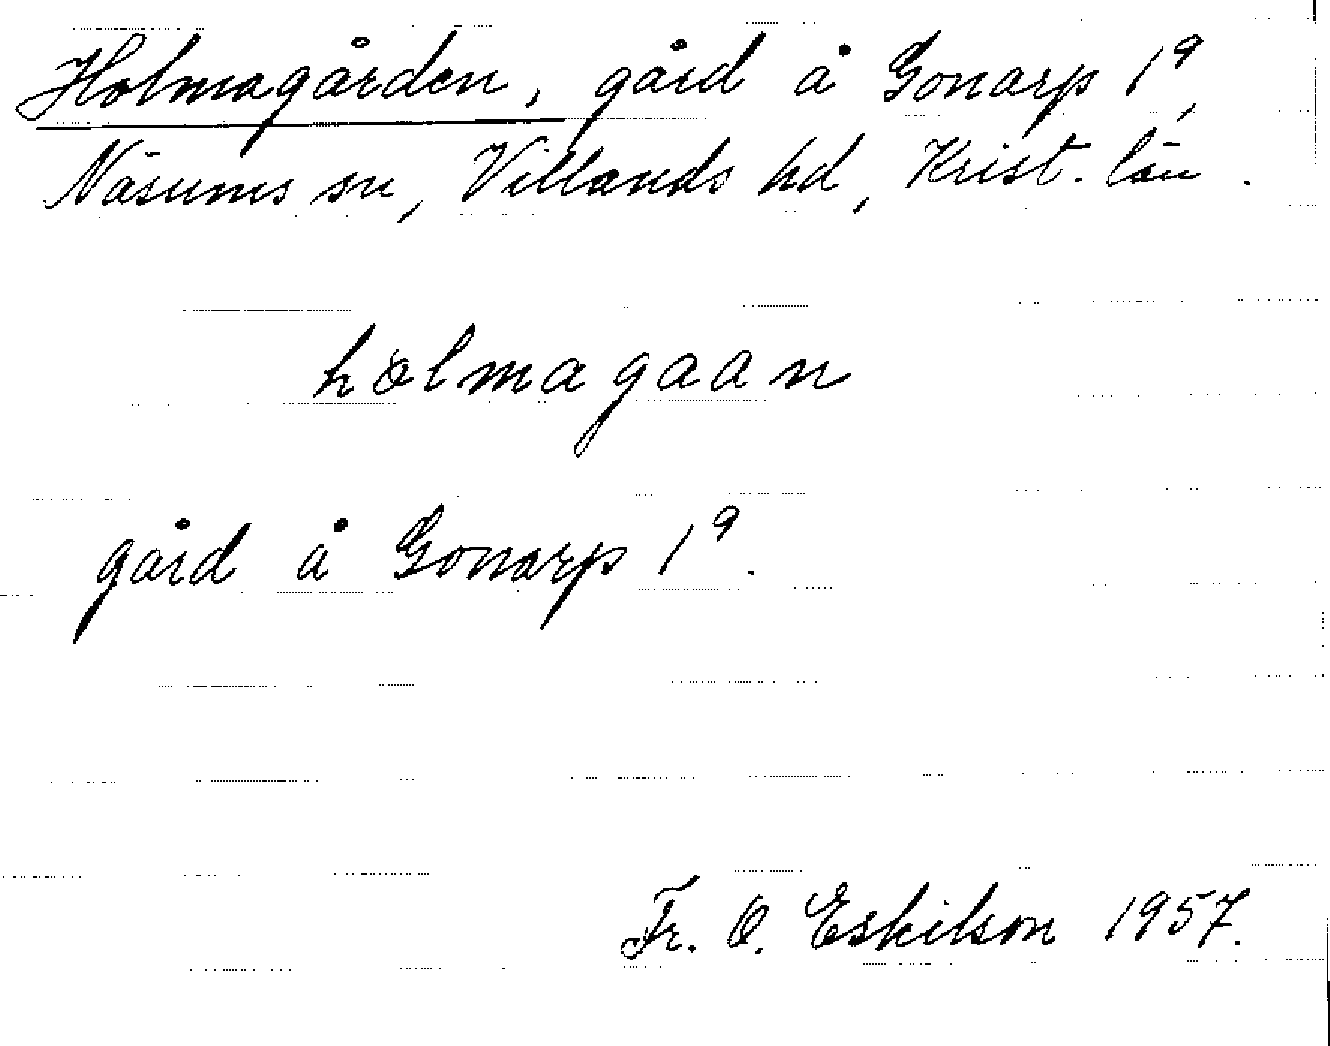 Holmagården, gård å Gonarp 1⁹,
Näsums sn, Villands hd, Krist. län.
holmagaan
gård å Gonarp 1⁹.
Fr. O. Eskilson 1957.